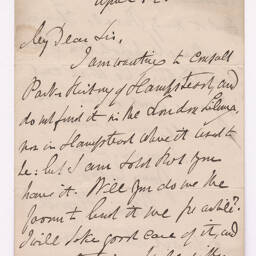 My Dear Sir,
I am wanting to consult
Park's History of Hampstead, and
do not find it in the London Library,
nor in Hampstead where it used to
be: but I am told that you
have it. Will you do me the
favour to lend it me for awhile?
I will take good care of it, and